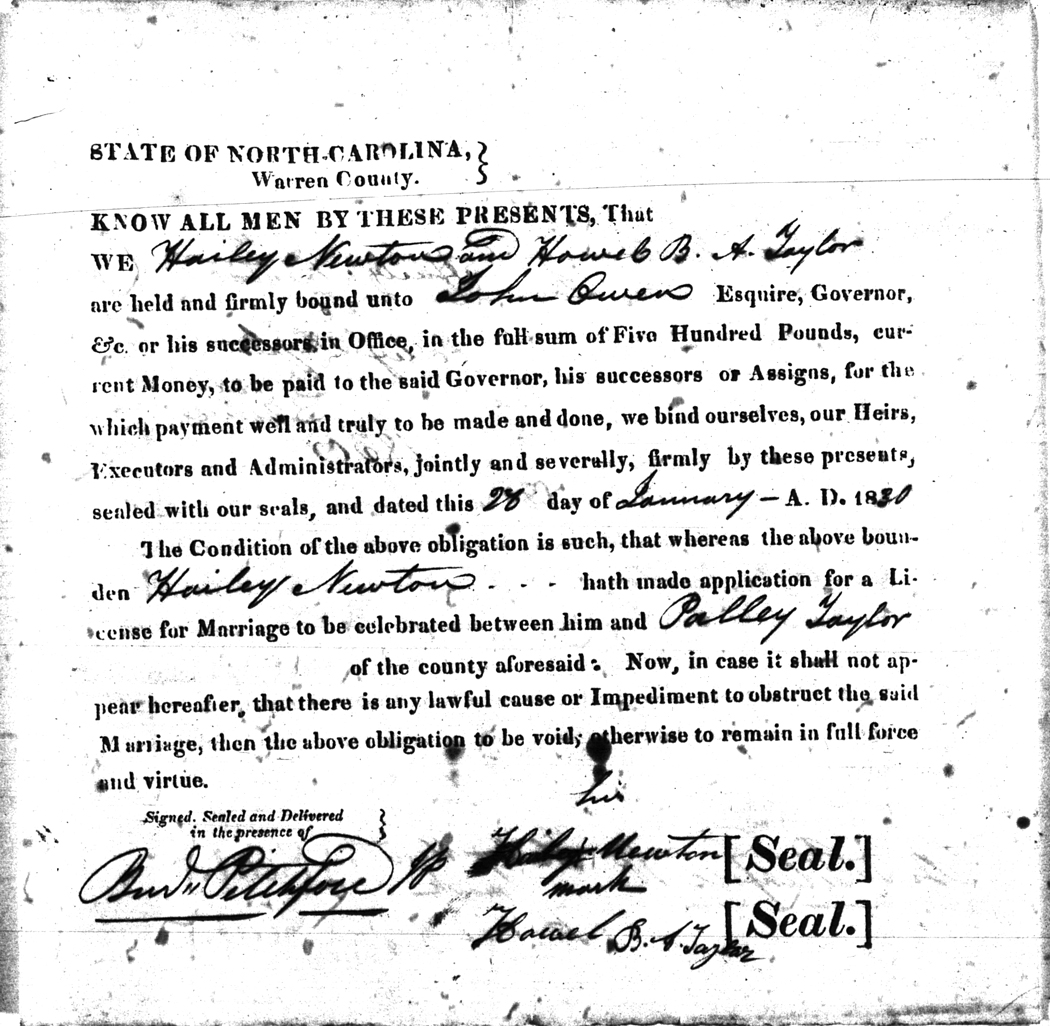 STATE OF NORTH-CAROLINA,
Warren County.
KNOW ALL MEN BY THESE PRESENTS, That
WE Hailey Newton and Howel B. A. Taylor
are held and firmly bound unto John Owen Esquire, Governor,
&c. or his successors in Office, in the full sum of Five Hundred Pounds, cur-
rent Money, to be paid to the said Governor, his successors or Assigns, for the
which payment well and truly to be made and done, we bind ourselves, our Heirs,
Executors and Administrators, jointly and severally, firmly by these presents,
sealed with our seals, and dated this 28 day of January — A. D. 1830
The Condition of the above obligation is such, that whereas the above boun-
den Hailey Newton - - - hath made application for a Li-
cense for Marriage to be celebrated between him and Polley Taylor
of the county aforesaid: Now, in case it shall not ap-
pear hereafter, that there is any lawful cause or Impediment to obstruct the said
Marriage, then the above obligation to be void; otherwise to remain in full force
and virtue.
Signed, Sealed and Delivered
in the presence of
his
Hailey x Newton [Seal.]
mark
Howel B. A. Taylor [Seal.]